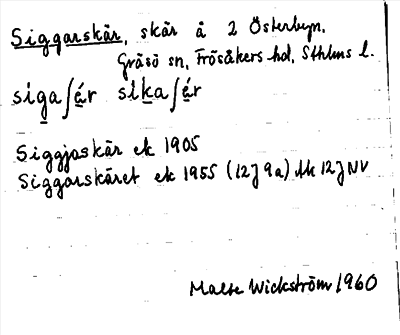 Siggarskär, skär å 2 Österbyn,
Gräsö sn, Frösåkers hd, Sthlms l.
siga ʃär sika ʃär
Siggjaskär ek 1905
Siggarskäret ek 1955 (12J 9a) tk 12J NV
Malte Wickström 1960